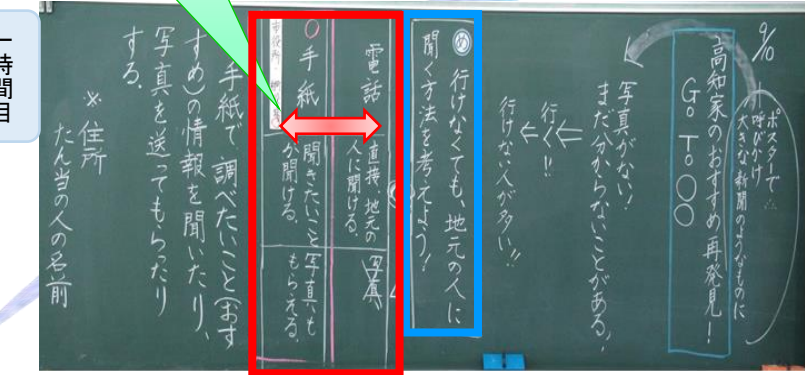 9/10
ポスターで
呼びかけ
大きな新聞のようなものに
高知家のおすすめ再発見!
G。T。〇〇
写真がない!
まだ分からないことがある,
行く!!
行けない人が多い!!
め 行けなくても、地元の人に
聞く方法を考えよう!
電話
直接、地元の
人に聞ける。
写真
〇手紙
聞きたいこと
が聞ける。
写真も
もらえる。
市役所
手紙で調べたいこと(おす
すめ)の情報を聞いたり、
写真を送ってもらったり
する。
※住所
たん当の人の名前
一時間目